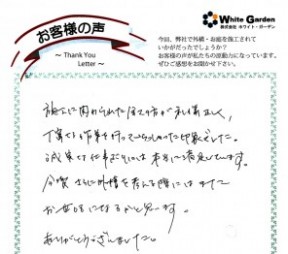 お客様の声
～ Thank You
Letter ～
White Garden
株式会社 ホワイト・ガーデン
今回、弊社で外構・お庭を施工されて
いかがだったでしょうか？
お客様の声が私たちの原動力になっています。
ぜひご感想をお聞かせ下さい。
施工に関わられた全ての方が礼儀正しく、
丁寧な作業を行ってもらえた印象でした。
誠実な仕事ぶりには本当に満足しています。
今後 さらに外構を考える際にはまた
お世話になるかと思います。
ありがとうございました。